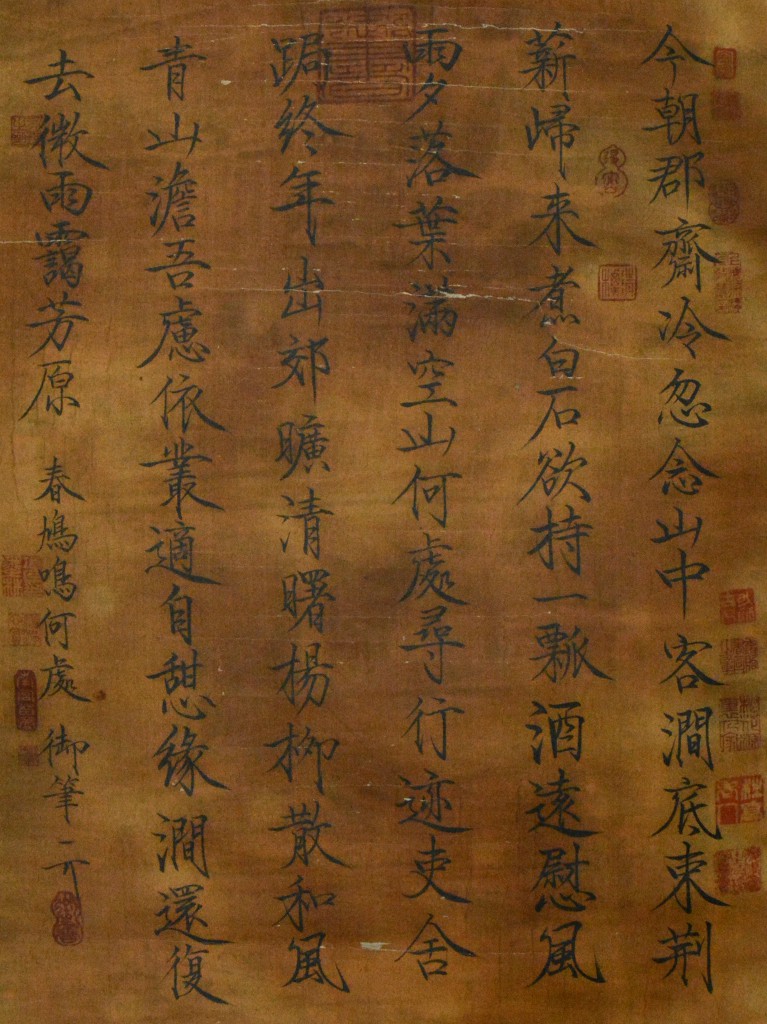 今朝郡齋冷忽念山中客澗底束荆
薪歸来煮白石欲持一瓢酒遠慰風
雨夕落葉滿空山何處尋行迹吏舍
跼終年出郊曠清曙楊柳散和風
青山澹吾慮依叢適自憩緣澗還復
去微雨靄芳原
春鳩鳴何處
御筆